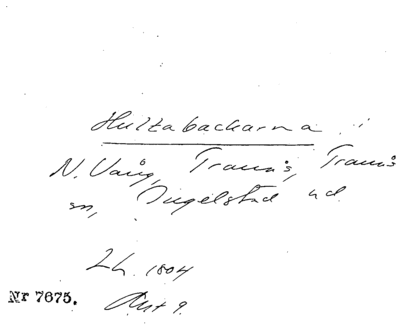 Hultabackarna i
N. Vång, Tranås, Tranås
sn, Ingelstad hd.
Lh. 1804
Akt 9.
Nr 7675.